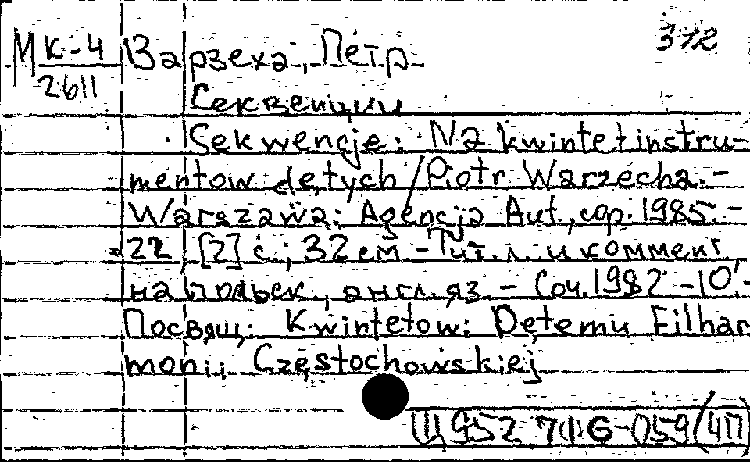 МК-4 Варзеха, Пётр 312
2611
Секвенции
Sekwencje: Na kwintet instru-
mentow dętych / Piotr Warzecha. -
Warszawa: Agencja Aut., cop. 1985. -
22, [2] с.; 32 см - Тит. л. и коммент.
на польск., англ. яз. - Соч. 1982 - 10'. -
Посвящ.: Kwintetowi Dętemu Filhar
monii Częstochowskiej
Щ952 7(1)6-059 (4П)